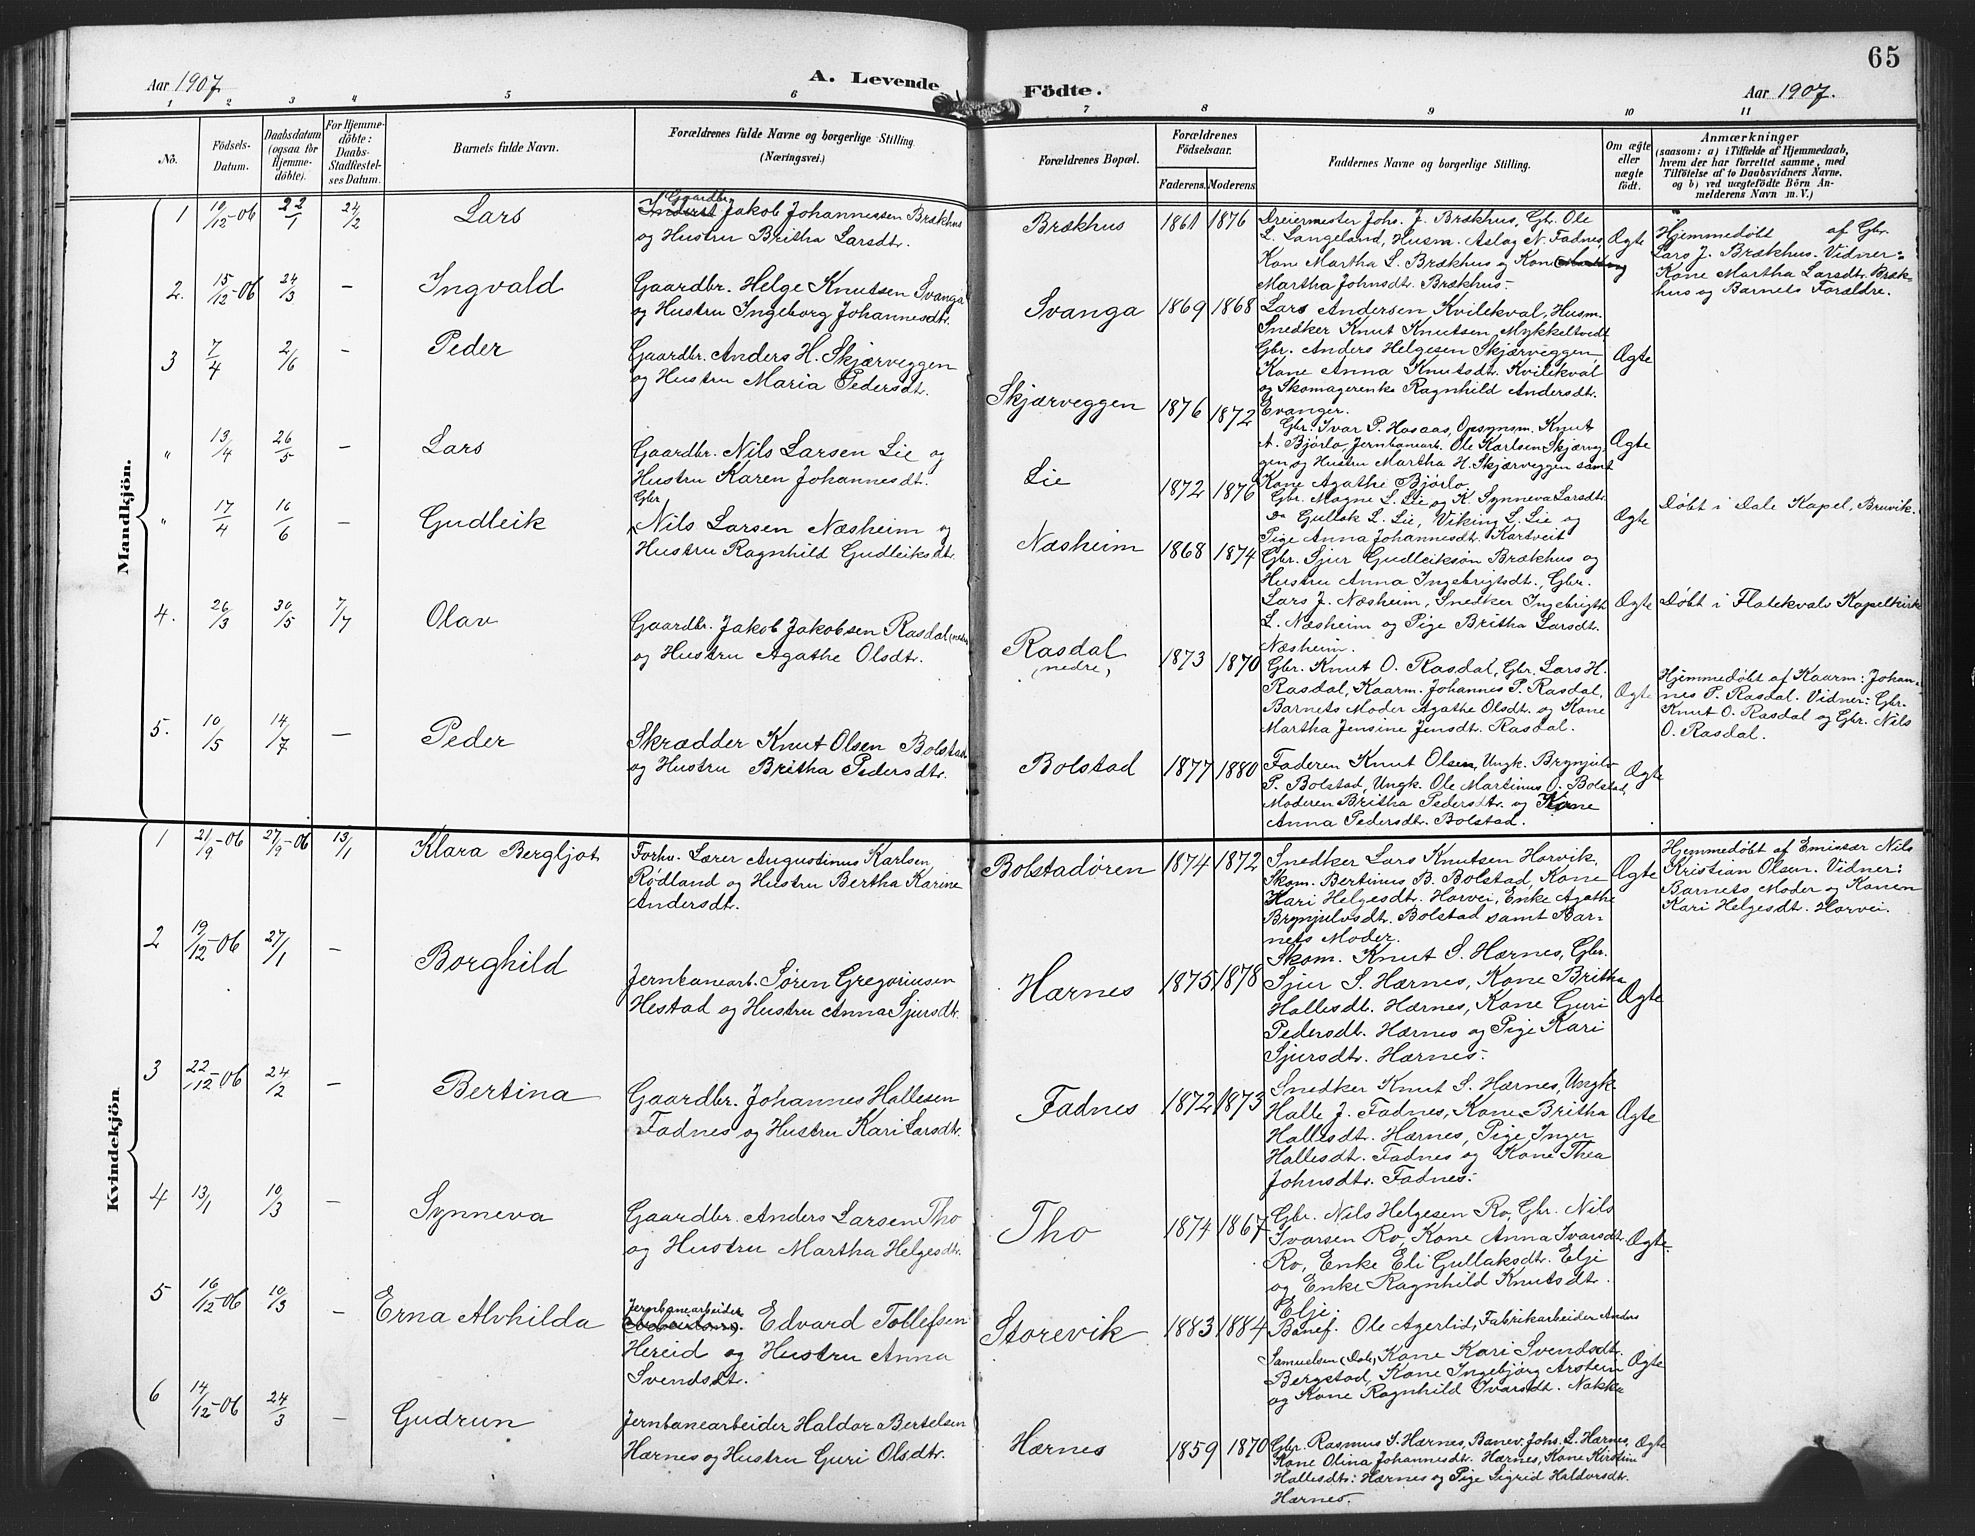 65
Aar 1907.
A. Levende
Födte.
Aar 1907.
1 2 3 4 5 6 7 8 9 10 11
No.
Födsels-
Datum.
Daabsdatum
(ogsaa for
Hjemme-
döbte).
For Hjemme-
döbte:
Daabs-
Stadfæstel-
ses Datum.
Barnets fulde Navn.
Forældrenes fulde Navne og borgerlige Stilling
(Næringsvei.)
Forældrenes Bopæl.
Forældrenes
Födselsaar.
Faderens. Moderens.
Faddernes Navne og borgerlige Stilling.
Om ægte
eller
uægte
födt.
Anmærkninger
(saasom: a) i Tilfælde af Hjemmedaab,
hvem der har forrettet samme, med
Tilföielse af to Daabsvidners Navne,
og b) ved uægtefödte Börn An-
melderens Navn m. V.)
Mandkjön.
1 10/12-06 22/1 24/2 Lars
Gaardbr.
Inderst Jakob Johannessen Brækhus
og Hustru Britha Larsdtr.
Brækhus 1861 1876
Dreiermester Johs. J. Brækhus, Gbr. Ole
L. Langeland, Husm. Aslag N. Fadnes,
Kone Martha L. Brækhus og Kone
Martha Johnsdtr. Brækhus.
Ægte
Hjemmedøbt af Gbr.
Lars J. Brækhus. Vidner:
Kone Martha Larsdtr. Bræk-
hus og Barnets Forældre.
2. 15/12-06 24/3 – Ingvald
Gaardbr. Helge Knutsen Svanga
og Hustru Ingeborg Johannesdtr.
Svanga 1869 1868
Lars Andersen Kvilekval, Husm.
Snedker Knut Knutsen Mykkeltvedt
Gbr. Anders Helgesen Skjærveggen,
Kone Anna Knutsdtr. Kvilekval
og Skomagerenke Ragnhild Andersdtr.
Evanger.
Ægte
3 7/4 2/6 – Peder
Gaardbr. Anders H. Skjærveggen
og Hustru Maria Pedersdtr.
Skjærveggen 1876 1872
Gbr. Ivar P. Hosaas, Opsynsm. Knut
A. Bjørlo Jernbanearb. Ole Karlsen Skjærveg-
gen og Hustru Martha H. Skjærveggen samt
Kone Agathe Bjørlo.
Ægte
" 13/4 26/5 – Lars
Gaardbr. Nils Larsen Lie og
Hustru Karen Johannesdtr.
Lie 1872 1876
Gbr. Magne L. Lie og K. Synneva Larsdtr.
Do Gullak L. Lie, Viking L. Lie og
Pige Anna Johannesdtr. Karsveit
Ægte
Døbt i Dale Kapel, Bruvik.
" 17/4 16/6 – Gudleik
Gbr
Nils Larsen Næsheim og
Hustru Ragnhild Gudleiksdtr.
Næsheim 1868 1874
Gbr. Sjur Gudleiksøn Brækhus og
Hustru Anna Ingebrigtsdtr., Gbr.
Lars J. Næsheim, Snedker Ingebrigth
L. Næsheim og Pige Britha Larsdtr.
Næsheim.
Ægte
Døbt i Flatekvals Kapelkirke
4. 26/3 30/5 7/7 Olav
Gaardbr. Jakob Jakobsen Rasdal (nedre)
og Hustru Agathe Olsdtr.
Rasdal
(nedre) 1873 1870
Gbr. Knut O. Rasdal, Gbr. Lars H.
Rasdal, Kaarm. Johannes P. Rasdal,
Barnets Moder Agathe Olsdtr. og Kone
Martha Jensine Jensdtr. Rasdal.
Ægte
Hjemmedøbt af Kaarm: Johan-
nes P. Rasdal. Vidner: Gbr.
Knut O. Rasdal og Gbr. Nils
O. Rasdal.
5. 10/5 14/7 – Peder
Skrædder Knut Olsen Bolstad
og Hustru Britha Pedersdtr.
Bolstad 1877 1880
Faderen Knut Olsen, Ungk. Brynjulv
P. Bolstad, Ungk. Ole Martinus O. Bolstad,
Moderen Britha Pedersdtr. og Kone
Anna Pedersdtr. Bolstad.
Ægte
Kvindekjön
1 21/9-06 27/9-06 13/1 Klara Bergljot
Forhv. Lærer Augustinus Karlsen
Rødland og Hustru Bertha Karine
Andersdtr.
Bolstadøren 1874 1872
Snedker Lars Knutsen Horvik,
Skom. Bertinus B. Bolstad, Kone
Kari Helgesdtr. Horvei, Enke Agathe
Brynjulvsdtr. Bolstad samt Bar-
nets Moder.
Ægte
Hjemmedøbt af Emissær Nils
Kristian Olsen. Vidner:
Barnets Moder og Konen
Kari Helgesdtr. Horvei.
2 19/12-06 27/1 – Borghild
Jernbanearb. Søren Gregoriusen
Hestad og Hustru Anna Sjursdtr.
Hærnes 1875 1878
Skom. Knut S. Hærnes, Gbr.
Sjur S. Hærnes, Kone Britha
Hallesdtr. Hærnes, Kone Guri
Pedersdtr. Hærnes og Pige Kari
Sjursdtr. Hærnes.
Ægte
3 22/12-06 24/2 – Bertina
Gaardbr. Johannes Hallesen
Fadnes og Hustru Kari Larsdtr.
Fadnes 1872 1873
Snedker Knut S. Hærnes, Ungk.
Halle J. Fadnes, Kone Britha
Hallesdtr. Hærnes, Pige Inger
Hallesdtr. Fadnes og Kone Thea
Johnsdtr. Fadnes.
Ægte
4 13/1 10/3 – Synneva
Gaardbr. Anders Larsen Tho
og Hustru Martha Helgesdtr.
Tho 1874 1867
Gbr. Nils Helgesen Ro, Gbr. Nils
Ivarsen Ro, Kone Anna Ivarsdtr.
Ro, Enke Eli Gullaksdtr. Elje
og Enke Ragnhild Knutsdtr.
Elje.
Ægte
5 16/12-06 10/3 – Erna Alvhilda
Jernbanearbeider
Edvard Tollefsen
Hereid og Hustru Anna
Svendsdtr.
Storevik 1883 1884
Banef. Ole Agerlid, Fabrikarbeider Anders
Samuelsen (Dale), Kone Kari Svendsdtr.
Bergstad, Kone Ingebjørg Arstein
og Kone Ragnhild Ivarsdtr. Nakke
Ægte
6 14/12-06 24/3 – Gudrun
Jernbanearbeider Haldor Bertelsen
Hærnes og Hustru Guri Olsdtr.
Hærnes 1859 1870
Gbr. Rasmus S. Hærnes, Banev. Johs. L. Hærnes,
Kone Olina Johannesdtr. Hærnes, Kone Kirstine
Hallesdtr: Hærnes og Pige Sigrid Haldorsdtr.
Hærnes.
Ægte